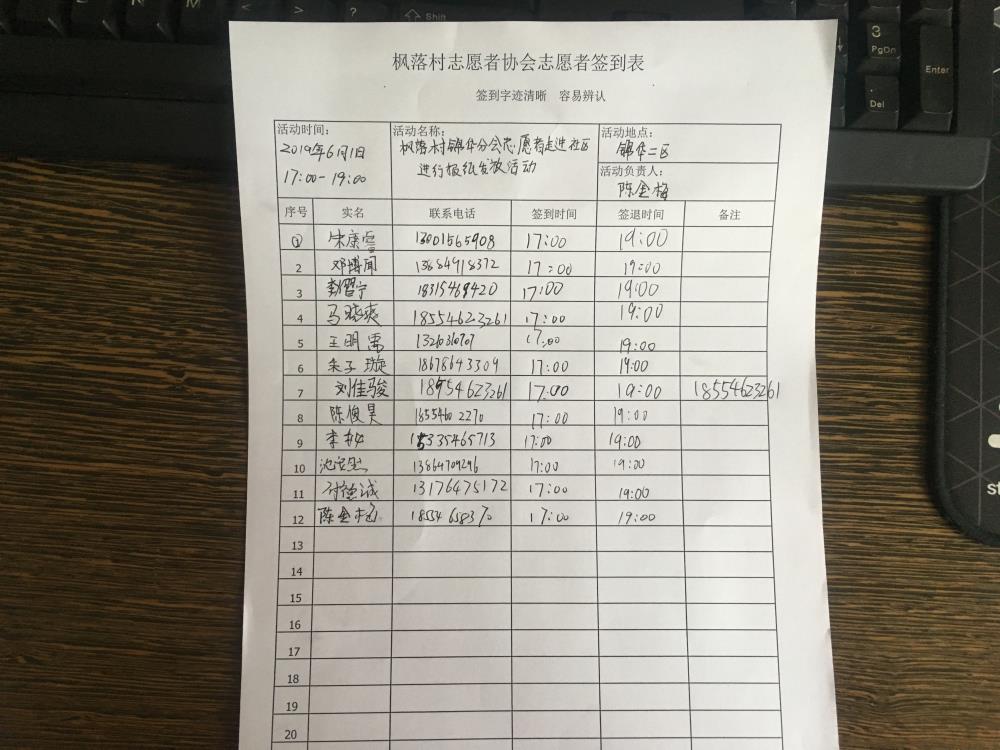 Shift
3
PgDn
Enter
.
Del
枫落村志愿者协会志愿者签到表
签到字迹清晰 容易辨认
活动时间: 活动名称: 活动地点:
2019年6月1日 枫落村锦华分会志愿者走进社区 锦华二区
17:00-19:00 进行报纸发放活动 活动负责人:
陈金梅
序号 实名 联系电话 签到时间 签退时间 备注
① 宋康雪 13001565908 17:00 19:00
2 邓博闻 13884918372 17:00 19:00
3 宁 18315469420 17:00 19:00
4 马晓爽 18554623261 17:00 19:00
5 王明 17:00 19:00
6 朱子璇 18678643309 17:00 19:00
7 刘佳骏 18954623261 17:00 19:00 18554623261
8 陈俊昊 1855460 2270 17:00 19:00
9 李 15335465713 17:00 19:00
10 13864709296 17:00 19:00
11 付德诚 13176475172 17:00 19:00
12 陈金梅 18554658370 17:00 19:00
13
14
15
16
17
18
19
20